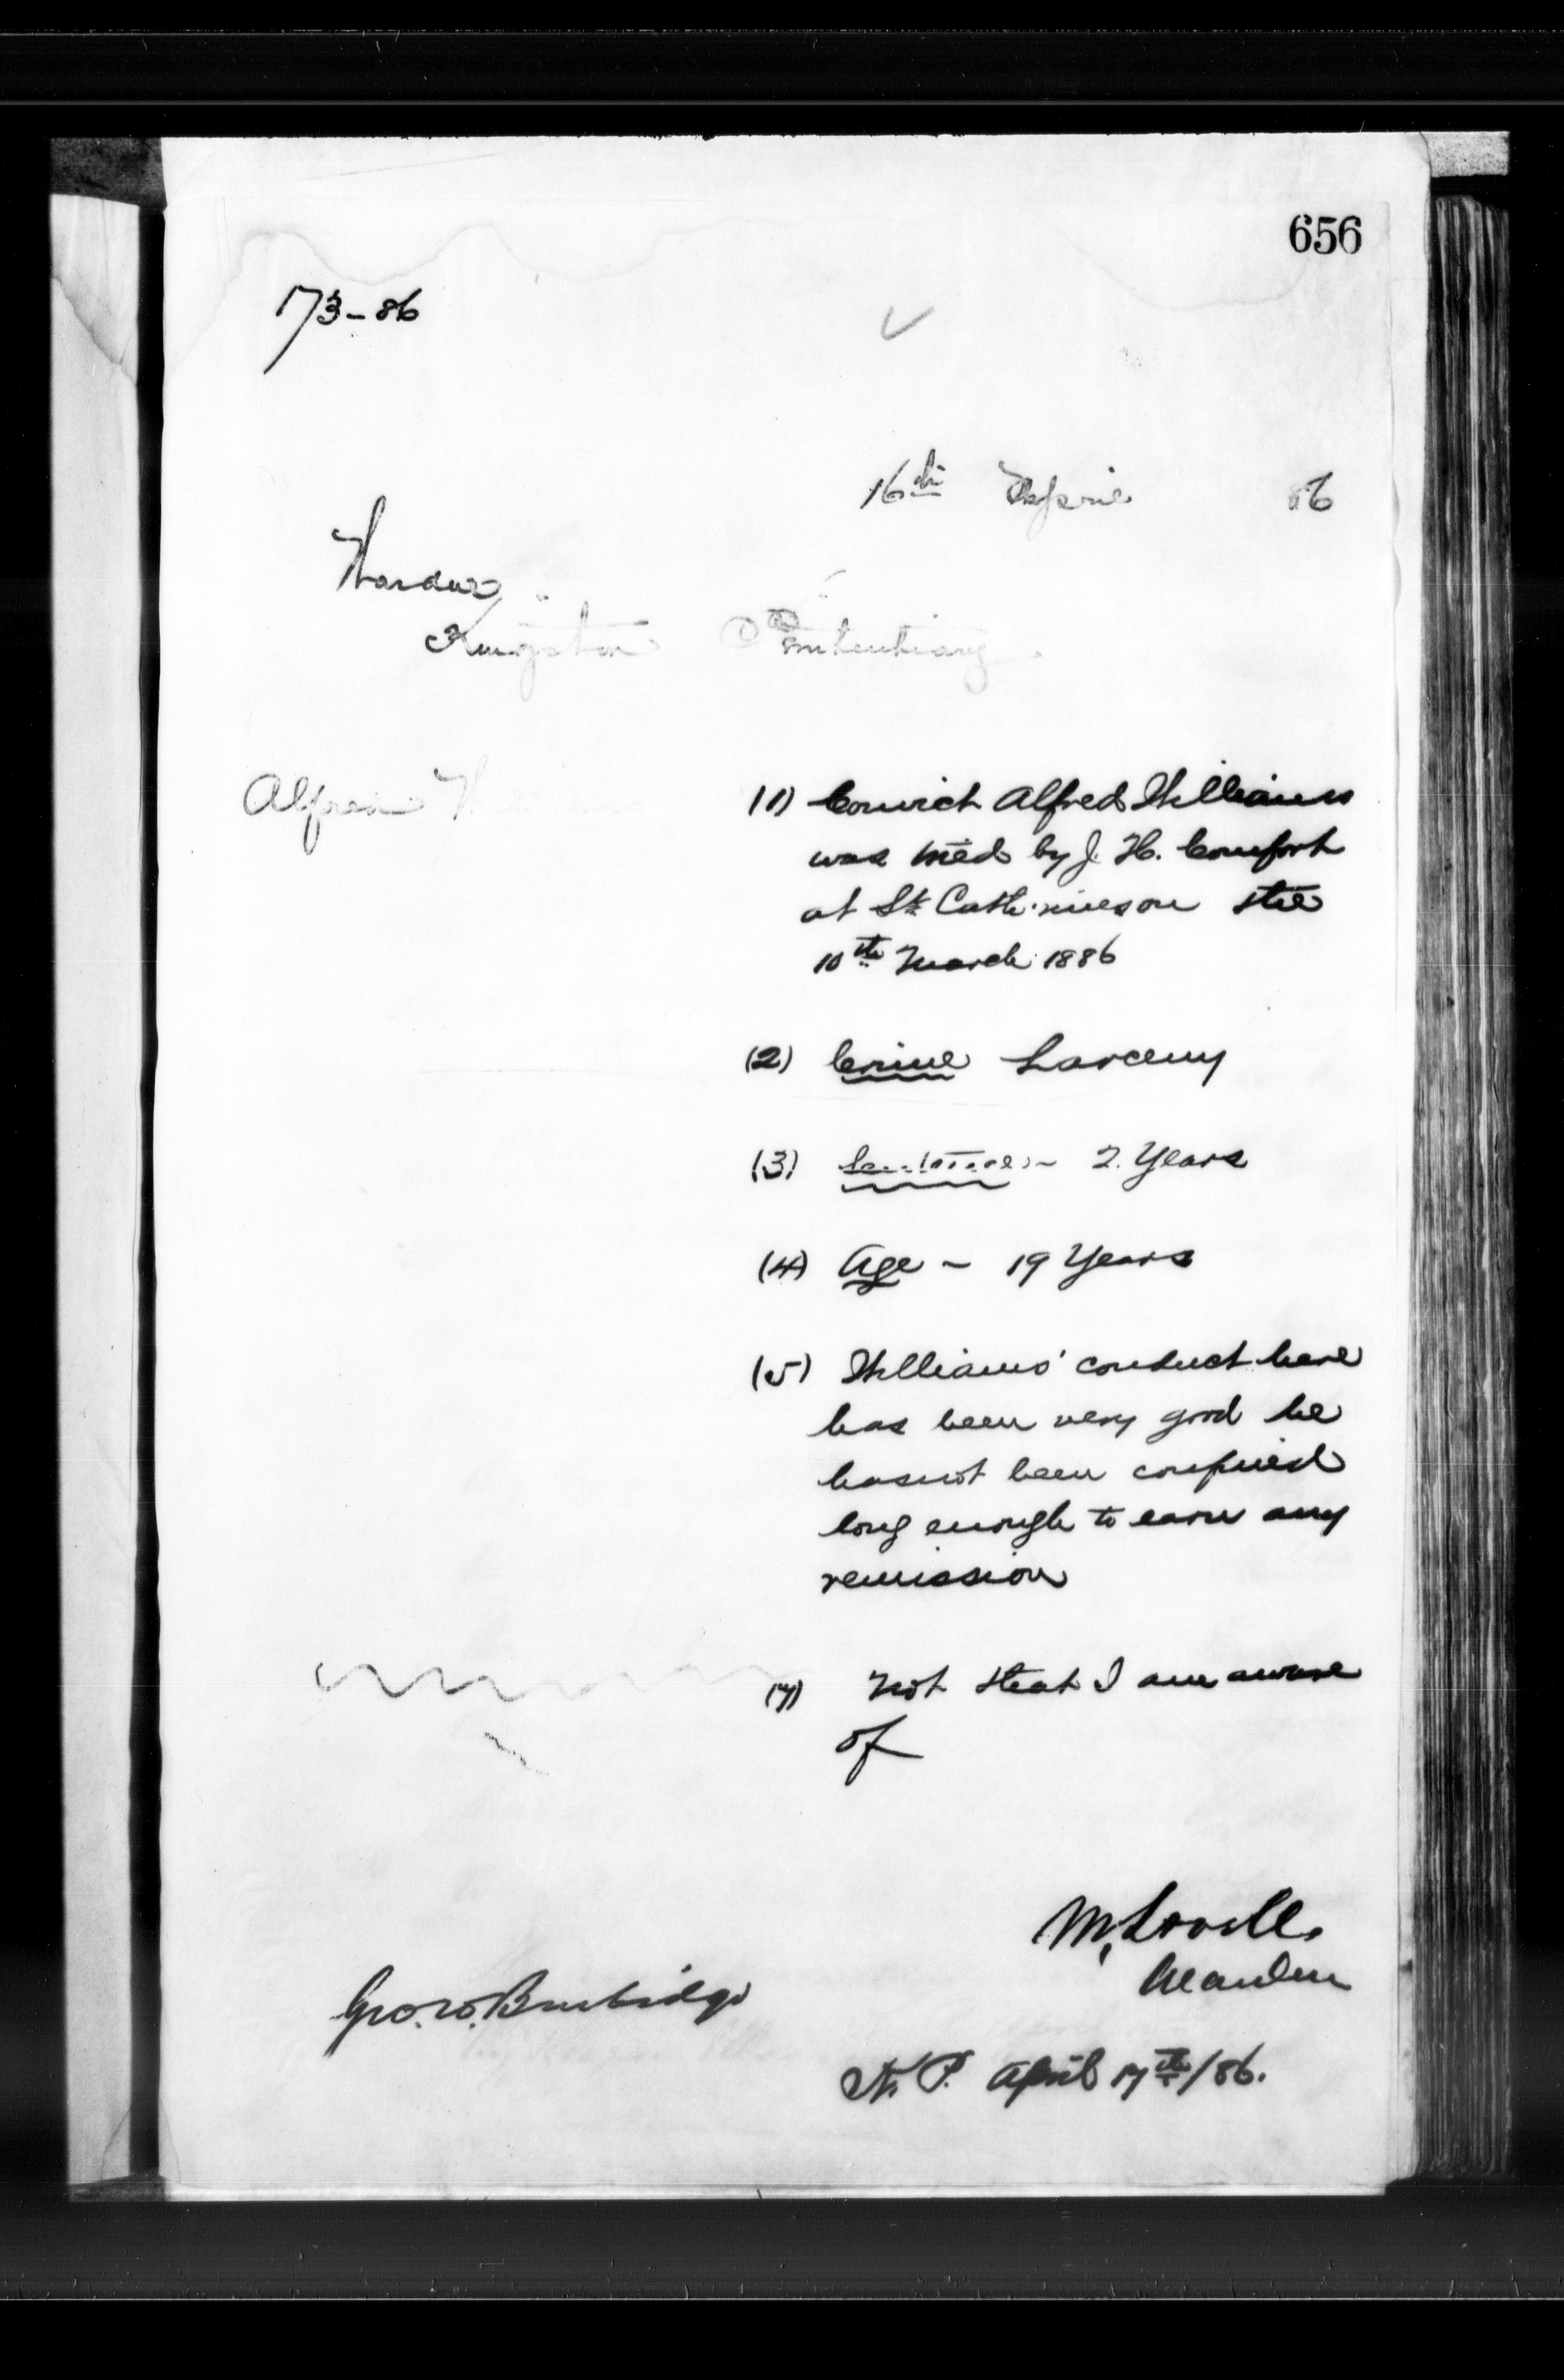 656
173-86
16th April 86
Warden
Kingston Penitentiary
Alfred W
(1) Convict Alfred Williams
was tried by J. H. Comfort
at St Catherines on the
10th March 1886
(2) Crime Larceny
(3) Sentence - 2 Years
(4) Age - 19 Years
(5) Williams' conduct here
has been very good he
has not been confined
long enough to earn any
remission
(7) Not that I am aware
of
M. Lavell
Warden
Geo. W. Burbidge
K. P. April 17th/86.